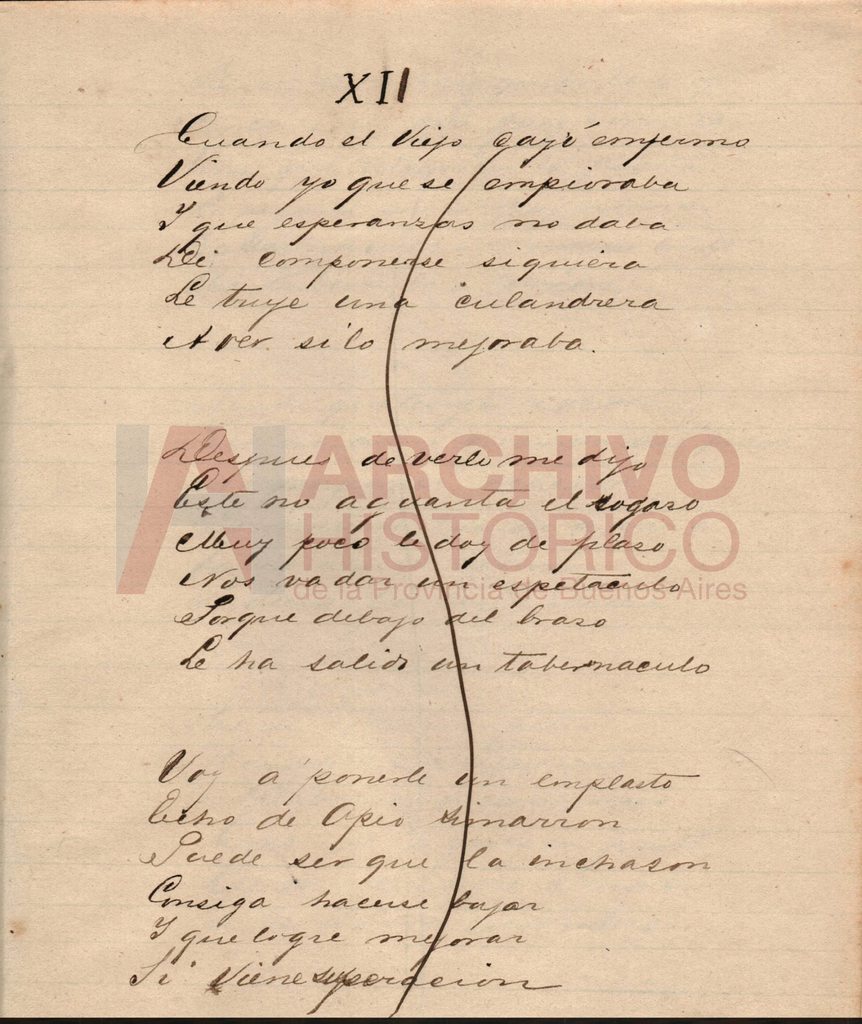 XII
Cuando el Viejo cayó enfermo
Viendo yo que se empioraba
Y que esperanzas no daba
Di componerse siquiera
Le truje una culandrera
A ver si lo mejoraba.
Despues de verlo me dijo
Este no aguanta el sogaso
Muy poco le doy de plaso
Nos va dar un espetaculo
Porque debajo del braso
Le ha salido un tabernaculo
Voy a ponerle un emplasto
Echo de Opio simarron
Puede ser que la inchason
Consiga hacerse bajar
Y que logre mejorar
Si viene superacion
ARCHIVO
HISTORICO
de la Provincia de Buenos Aires